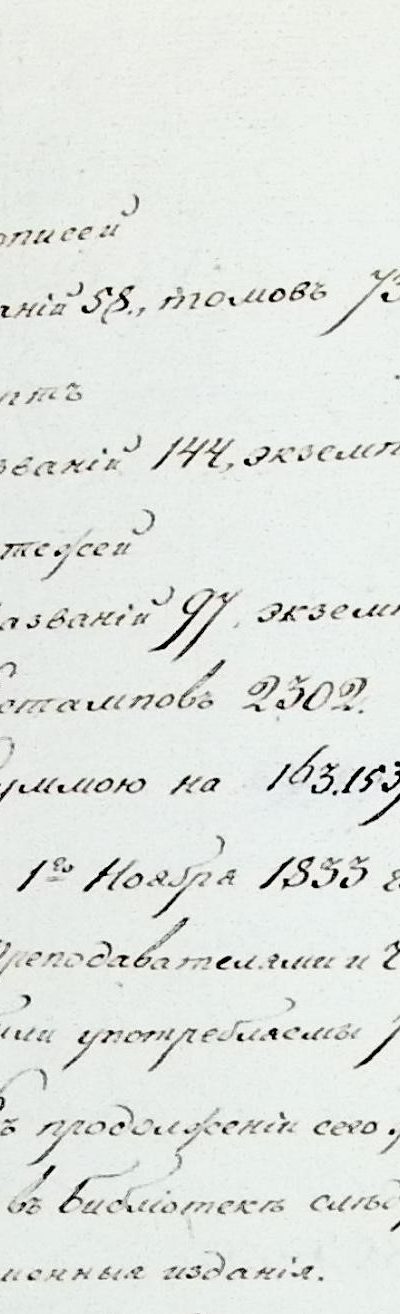 описей
аній 58., томовъ 73
птъ
званій 144, экземп
тежей
азваній 97, экземп
стамповъ 2302.
уммою на 163.153
1го Ноября 1833 г
Преподавателями и
или употребляемы
ъ продолженіи сего
въ Библіотекѣ слѣд
ионныя изданія.